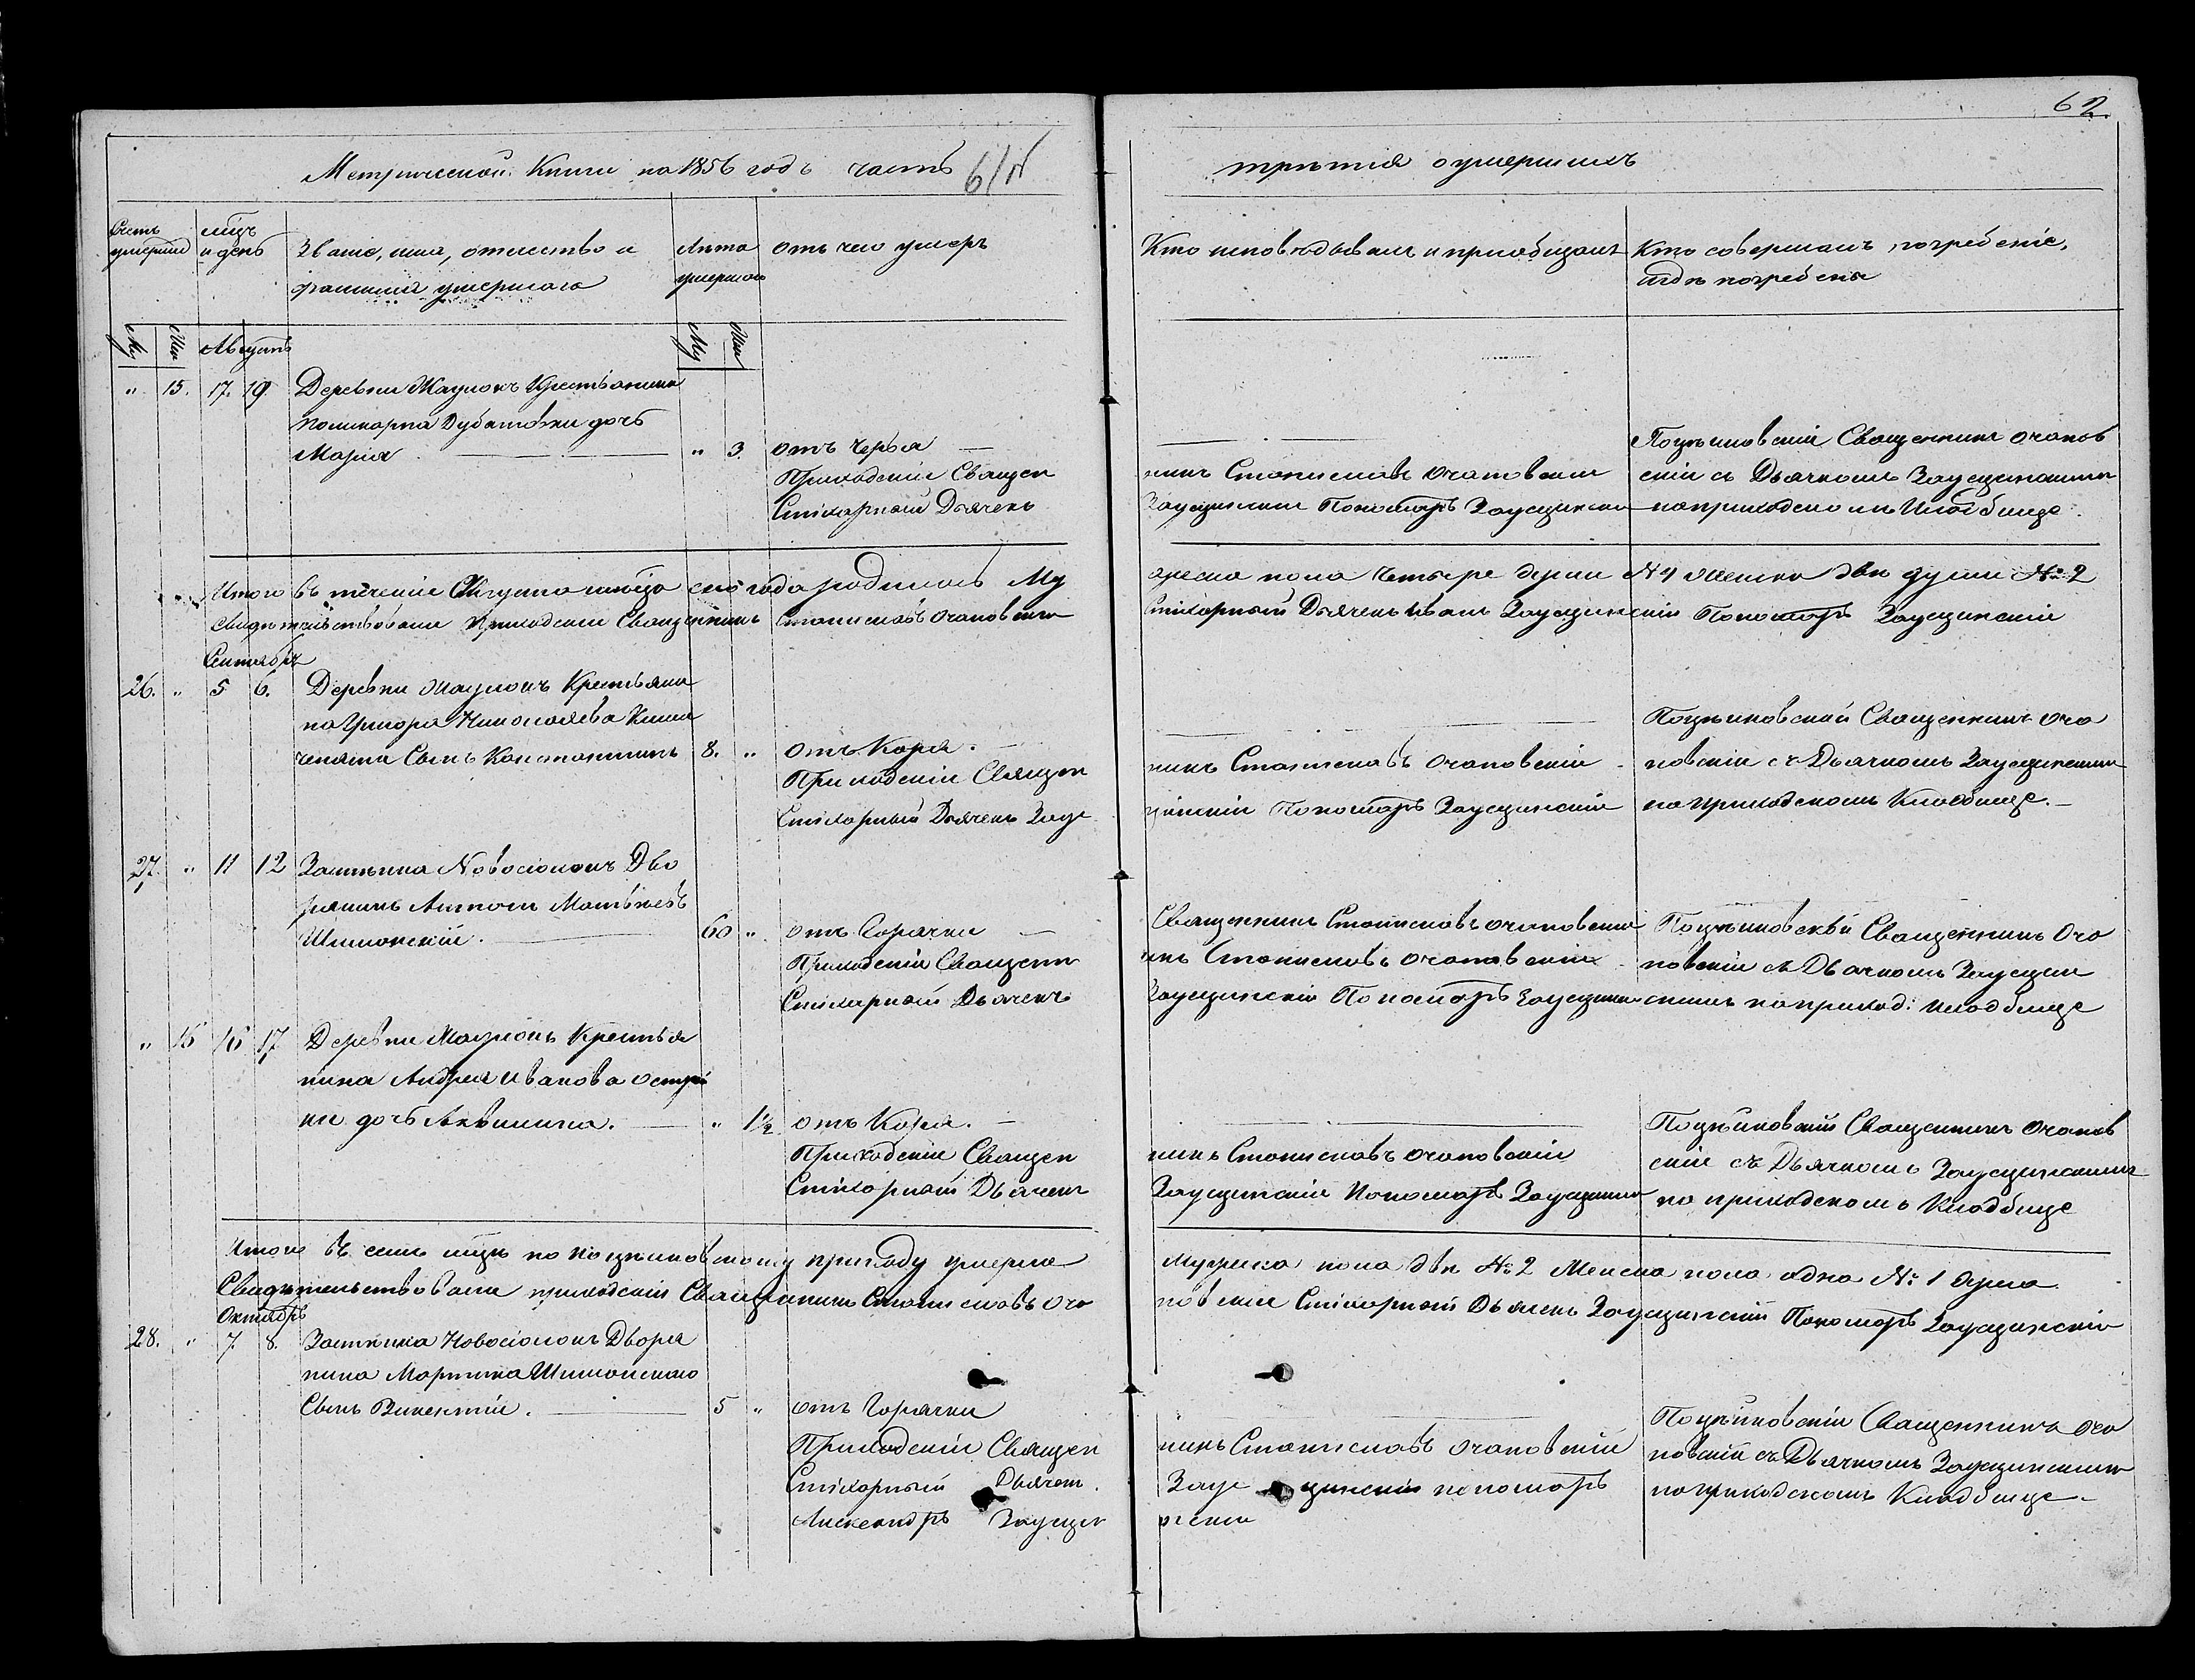 62.
Метрической Книги на 1856 годъ часть
третія о умершихъ
Счетъ умершихъ
мѣцъ и день
Званіе, имя, отчество и
фамилія умершаго
Лѣта умершаго
отъ чего умеръ
Кто исповѣдывалъ и пріобщалъ
Кто совершалъ погребеніе,
и гдѣ погребены
Му Жен Августъ Му Жен
" 15. 17. 19. Деревни Мацюнъ Крестьянина
Поликарпа Дубатовки дочь
Марія " 3. отъ Червя
Приходскій Священ
никъ Станиславъ Очаповскій
Стихарный Дьячекъ
Заусцинскій Пономарь Заусцински
Поцѣиковскій Священникъ Очапов
скій съ Дьячкомъ Заусцинскимъ
на приходскомъ Кладбище.
Итого въ теченіе Августа месяца сего года родилось Му
жеска пола Четыре души №4 женска двѣ души №2
Свидѣтельствовали Приходскій Священникъ Станиславъ Очаповскій
Стихарный Дьячекъ Иванъ Заусцинскій Пономарь Заусцинскій
Сентябрь
26. " 5 6. Деревни Мацюнъ Крестьяни
на Григора Николаева
Сынъ Константинъ 8. " отъ Коря.
Приходскій Священ
никъ Станиславъ Очаповскій
Стихарный Дьячекъ Заус
цинскій Пономарь Заусцинскій
Поцѣиковскій Священникъ Оча
повскій съ Дьячкомъ Заусцинскимъ
на приходскомъ Кладбище.
27. " 11 12 Застѣнка Новосіолокъ Дво
рянинъ Антонъ Матвѣевъ
Шимонскій. 60 " отъ Горячки
Приходскій Священн
Стихарный Дьячекъ
Священникъ Станиславъ Очаповскій
икъ Станиславъ Очаповскій
Заусцинскій Пономарь Заусцин
Поцѣиковскій Священникъ Оча
повскій съ Дьячкомъ Заусцин
скимъ на приход: кладбище
" 16 16 17 Деревни Мацюнъ Крестья
нина Андрея Иванова
дочь Аквилина. " 1½ отъ Коря.
Приходскій Священ
никъ Станиславъ Очаповскій
Стихарный Дьячекъ
Заусцинскій Пономарь Заусцински
Поцѣиковскій Священникъ Очапов
скій съ Дьячкомъ Заусцинскимъ
на приходскомъ Кладбище
Итого въ семъ мѣцѣ по Поцѣиковскому приходу умерло
Мужеска пола двѣ №2 Женска пола одна №1 душа
Свидѣтельствовали приходскій Священникъ Станиславъ Оча
повскій Стихарный Дьячекъ Заусцинскій Пономарь Заусцинскій
Октябрь
28. " 7. 8. Застѣнка Новосіолокъ Дворя
нина Мартина Шимонскаго
Сынъ Викентій. 5 " отъ Горячки
Приходскій Священ
никъ Станиславъ Очаповскій
Стихарный Дьячекъ
Заусцинскій пономарь
Александръ Заусцин
скій
Поцѣиковскій Священникъ Оча
повскій съ Дьячкомъ Заусцинскимъ
на приходскомъ Кладбище